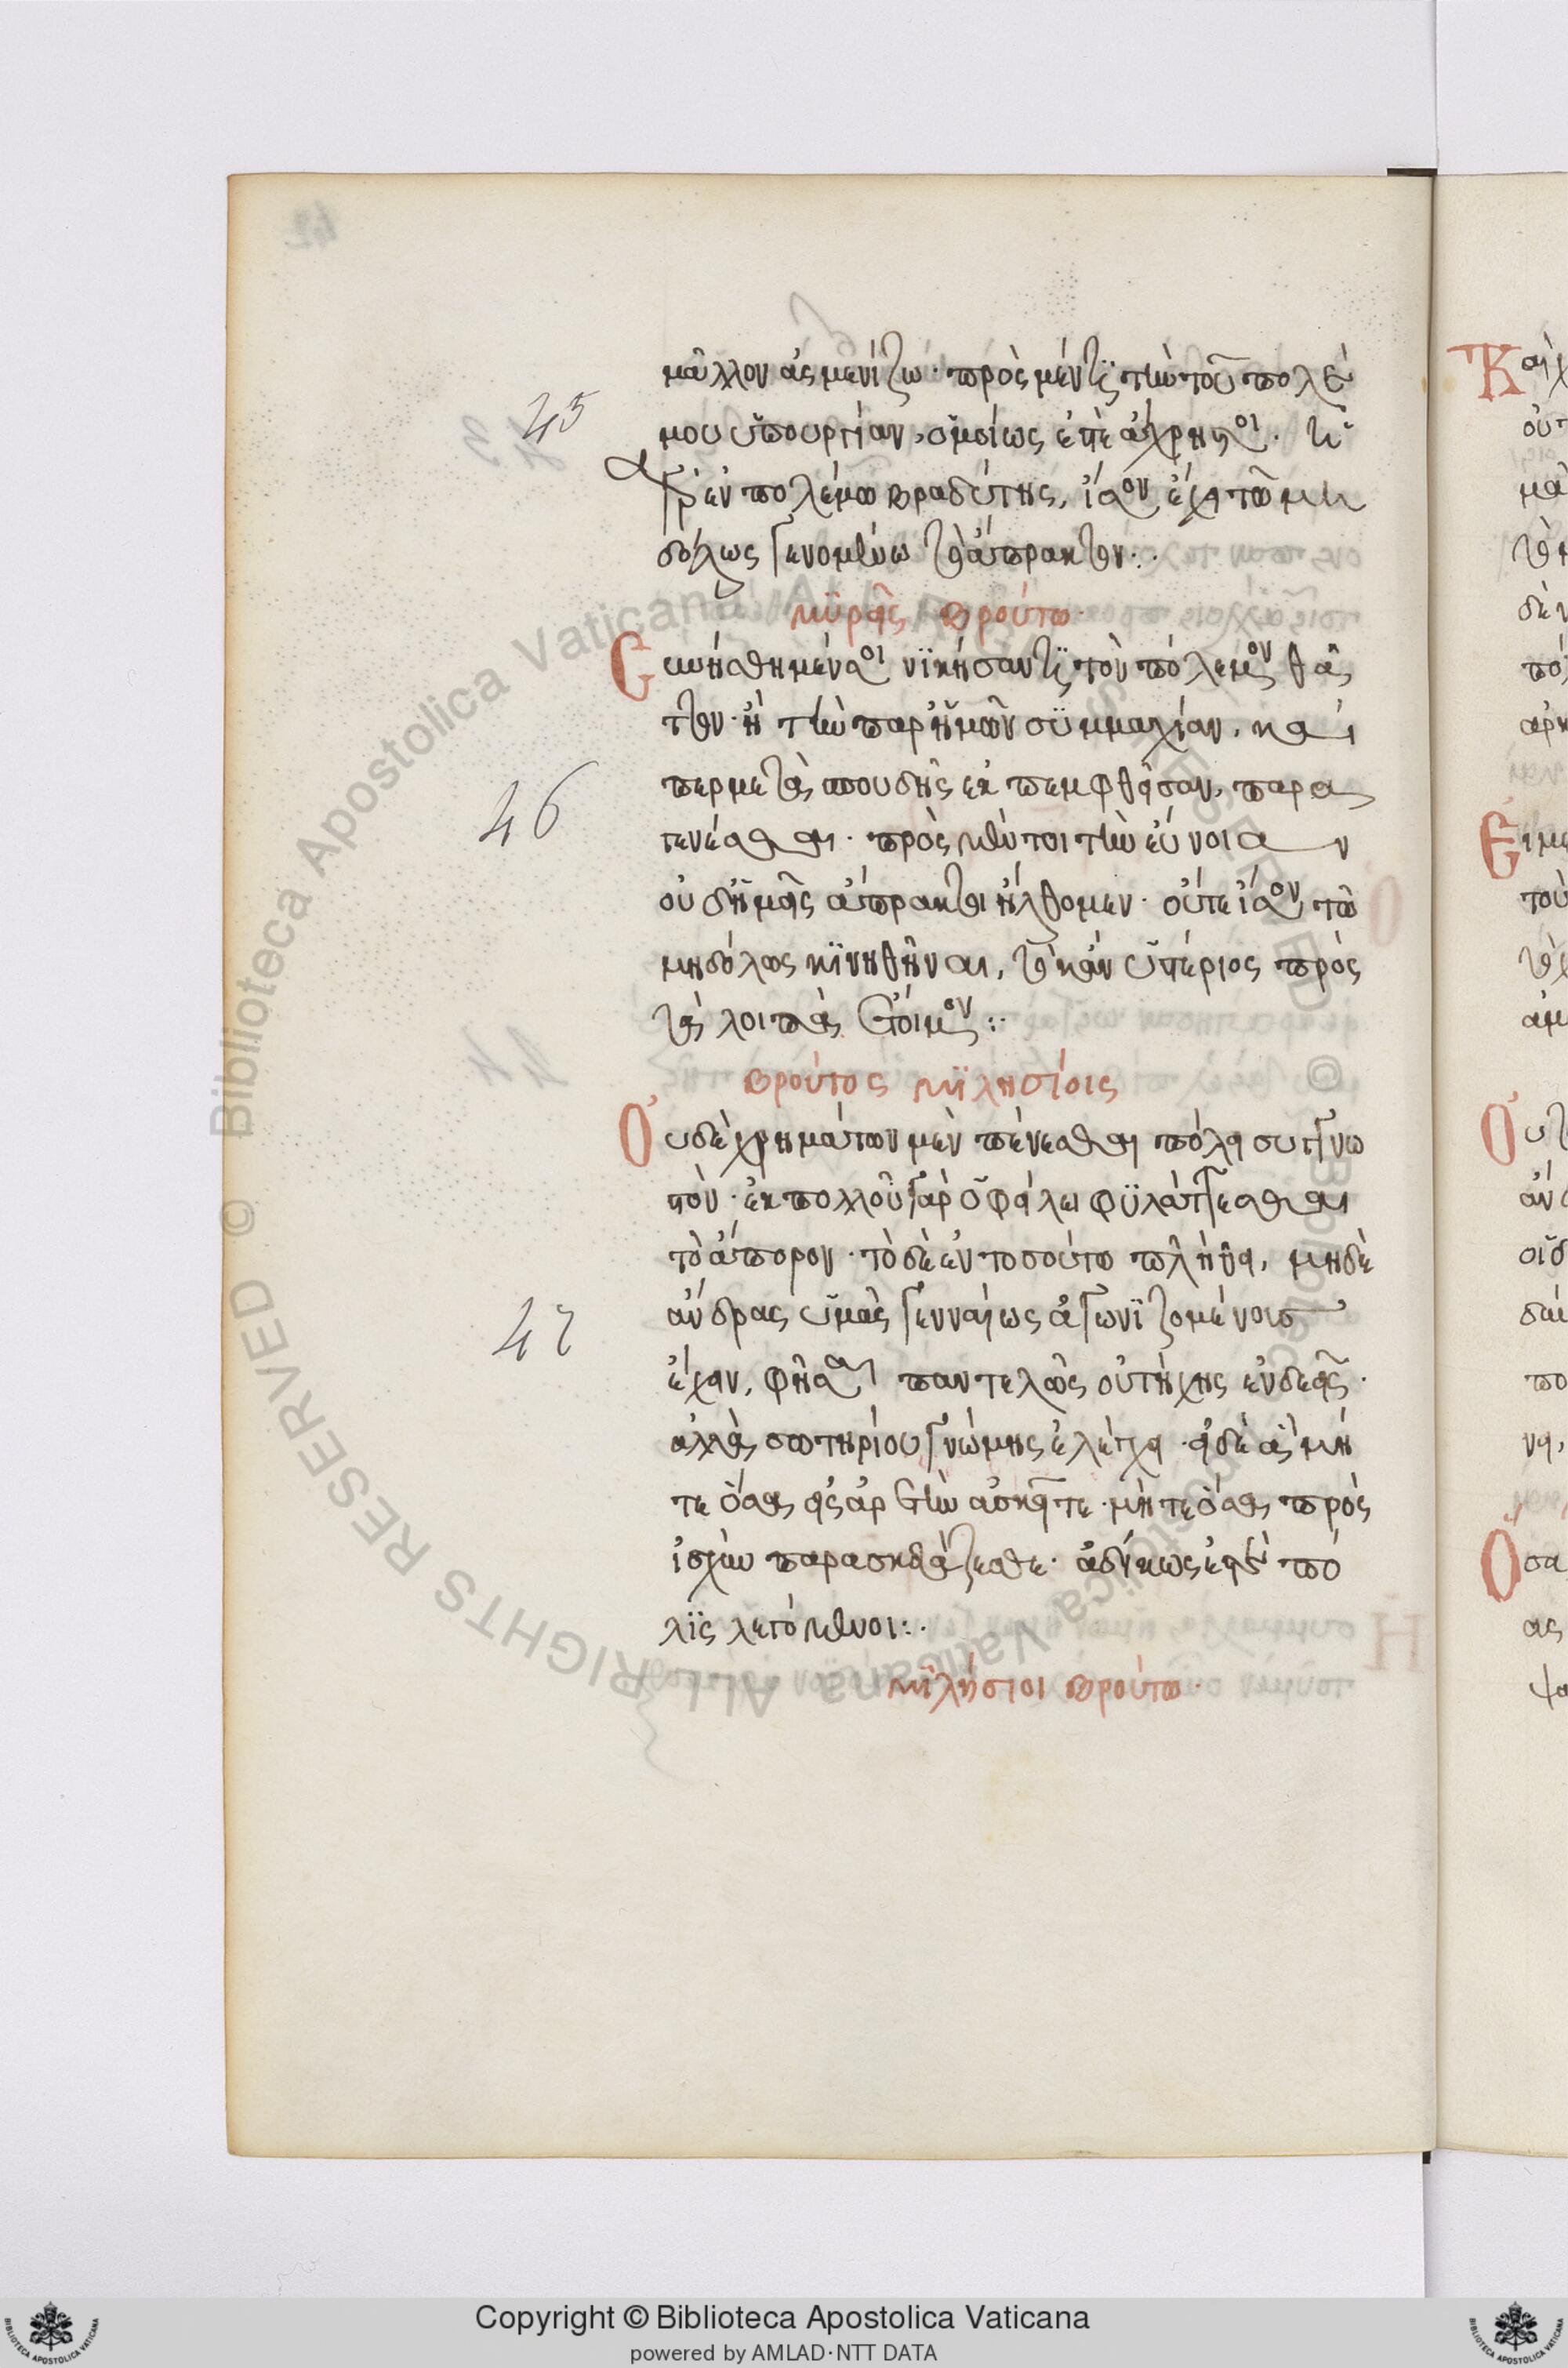 μᾶλλον ἀσμενίζω· πρὸς μέντοι τὴν τοῦ πολέ
45
μου ὑπουργίαν, ὁμοίως ἐστὲ ἄχρηστοι· ἡ
γὰρ ἐν πολέμω βραδύτης, ἴσον ἔχει τῶ μη
δόλως γενομένω τὸ ἄπρακτον:·
Μϋρεῖς Βρούτω·
Συνήσθημέν σοι νϊκήσαντι τὸν πόλεμον θᾶτ
τον· ἢ τὴν παρ' ἡμῶν συμμαχίαν, καί
46
περ μετὰ σπουδῆς ἐκπεμφθεῖσαν, παρα
γενέσθαι· πρὸς μέντοι τὴν εὔνοιαν
οὐδ' ἡμεῖς ἄπρακτοι ἤλθομεν· οὔτε ἴσον τῶ
μηδόλως κϊνηθῆναι, τὸ κἂν ὑστέριος πρὸς
τὰ λοιπὰ ἕτοιμον:·
Βροῦτος Μϊλησίοις
Οὐδὲ χρημάτων μὲν πένεσθαι πόλει συγγνω
στόν· ἐκ πολλοῦ γὰρ ὀφείλει φϋλάττεσθαι
τὸ ἄπορον· τὸ δὲ ἐν τοσούτω πλήθει, μηδὲ
47
ἄνδρας ὑμᾶς γενναίως ἀγωνϊζομένους
ἔχειν, φῆσαι παντελῶς οὐ τύχης ἐνδεᾶς·
ἀλλὰ σωτηρίου γνώμης ἐλέγχει· εἰ δὲ ἃ μή
τε ὅσα εἰς ἀρετὴν ἀσκεῖτε· μήτε ὅσα πρὸς
ἰσχὺν παρασκευάζεσθε· ἀδίκως ἐστὲ πό
λϊς λεγόμενοι:·
Μϊλήσιοι Βρούτω·
Copyright © Biblioteca Apostolica Vaticana
powered by AMLAD·NTT DATA